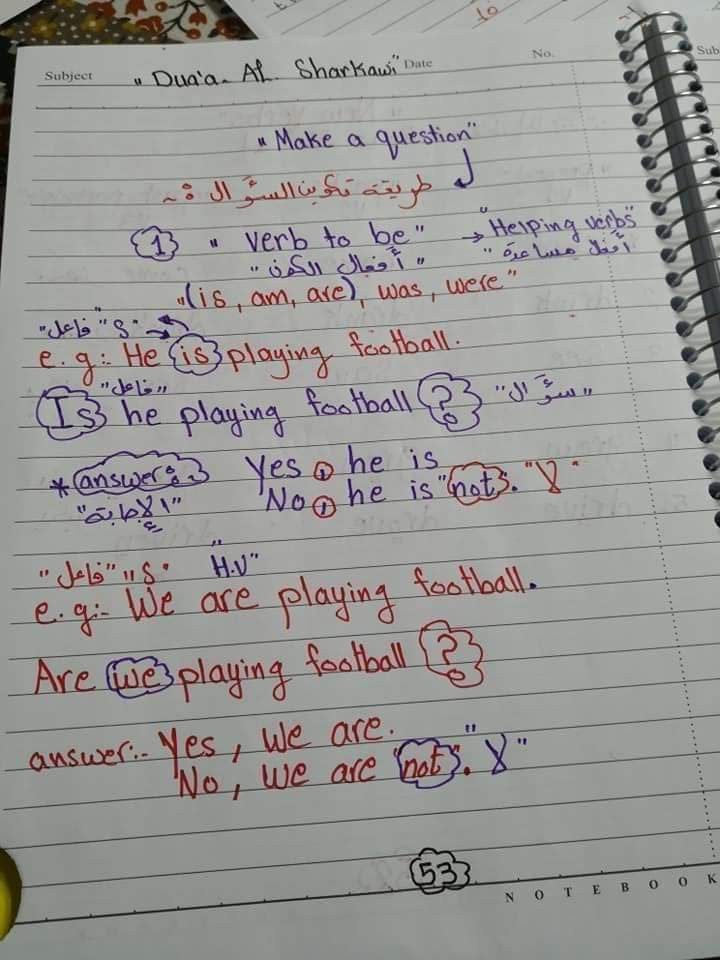 10
Subject "Dua'a. AL. Sharkawi" Date No. Sub
"Make a question"
طريقة تكوين السؤال :-
1 "verb to be" → "Helping verbs"
"أفعال الكون" "أفعل مساعدة"
"(is, am, are), was, were"
"فاعل" "S."
e.g:- He is playing football.
"فاعل"
Is he playing football ? "سؤال"
* answer:- Yes, he is
"الإجابة" No, he is "not". "لا"
"فاعل" "S. "H.V"
e.g:- We are playing football.
Are we playing football ?
answer:- Yes, we are.
No, we are "not". "لا"
53
NOTEBOOK